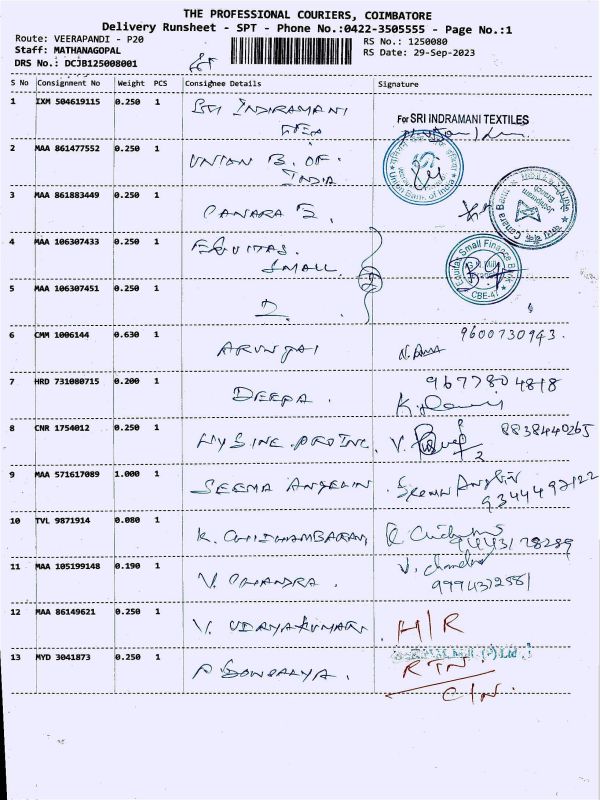 THE PROFESSIONAL COURIERS, COIMBATORE
Delivery Runsheet - SPT - Phone No.:0422-3505555 - Page No.:1
Route: VEERAPANDI - P20
RS No.: 1250080
Staff: MATHANAGOPAL
RS Date: 29-Sep-2023
DRS No.: DCJB125008001
S No Consignment No Weight PCS Consignee Details Signature
1 IXM 504619115 0.250 1 SRI INDIRAMANI
For SRI INDRAMANI TEXTILES
2 MAA 861477552 0.250 1 UNION B. OF.
INDIA
Union Bank of India
3 MAA 861883449 0.250 1 CANARA B.
Canara Bank
4 MAA 106307433 0.250 1 EQUITAS.
SMALL
Equitas Small Finance Bank
CBE-41
5 MAA 106307451 0.250 1
6 CMM 1006144 0.630 1 ARUN
9600730943.
7 HRD 731080715 0.200 1 DEEPA.
9677804818
8 CNR 1754012 0.250 1
8838440265
9 MAA 571617089 1.000 1 SEEMA ANGELIN
Seema Angelin
9344492122
10 TVL 9871914 0.080 1 K. CHIDHAMBARAM
9443178289
11 MAA 105199148 0.190 1 V. CHANDRA.
V. Chandra
9994372581
12 MAA 86149621 0.250 1 V. UDAYAKUMAR
H/R
13 MYD 3041873 0.250 1
RTN.
C/N.